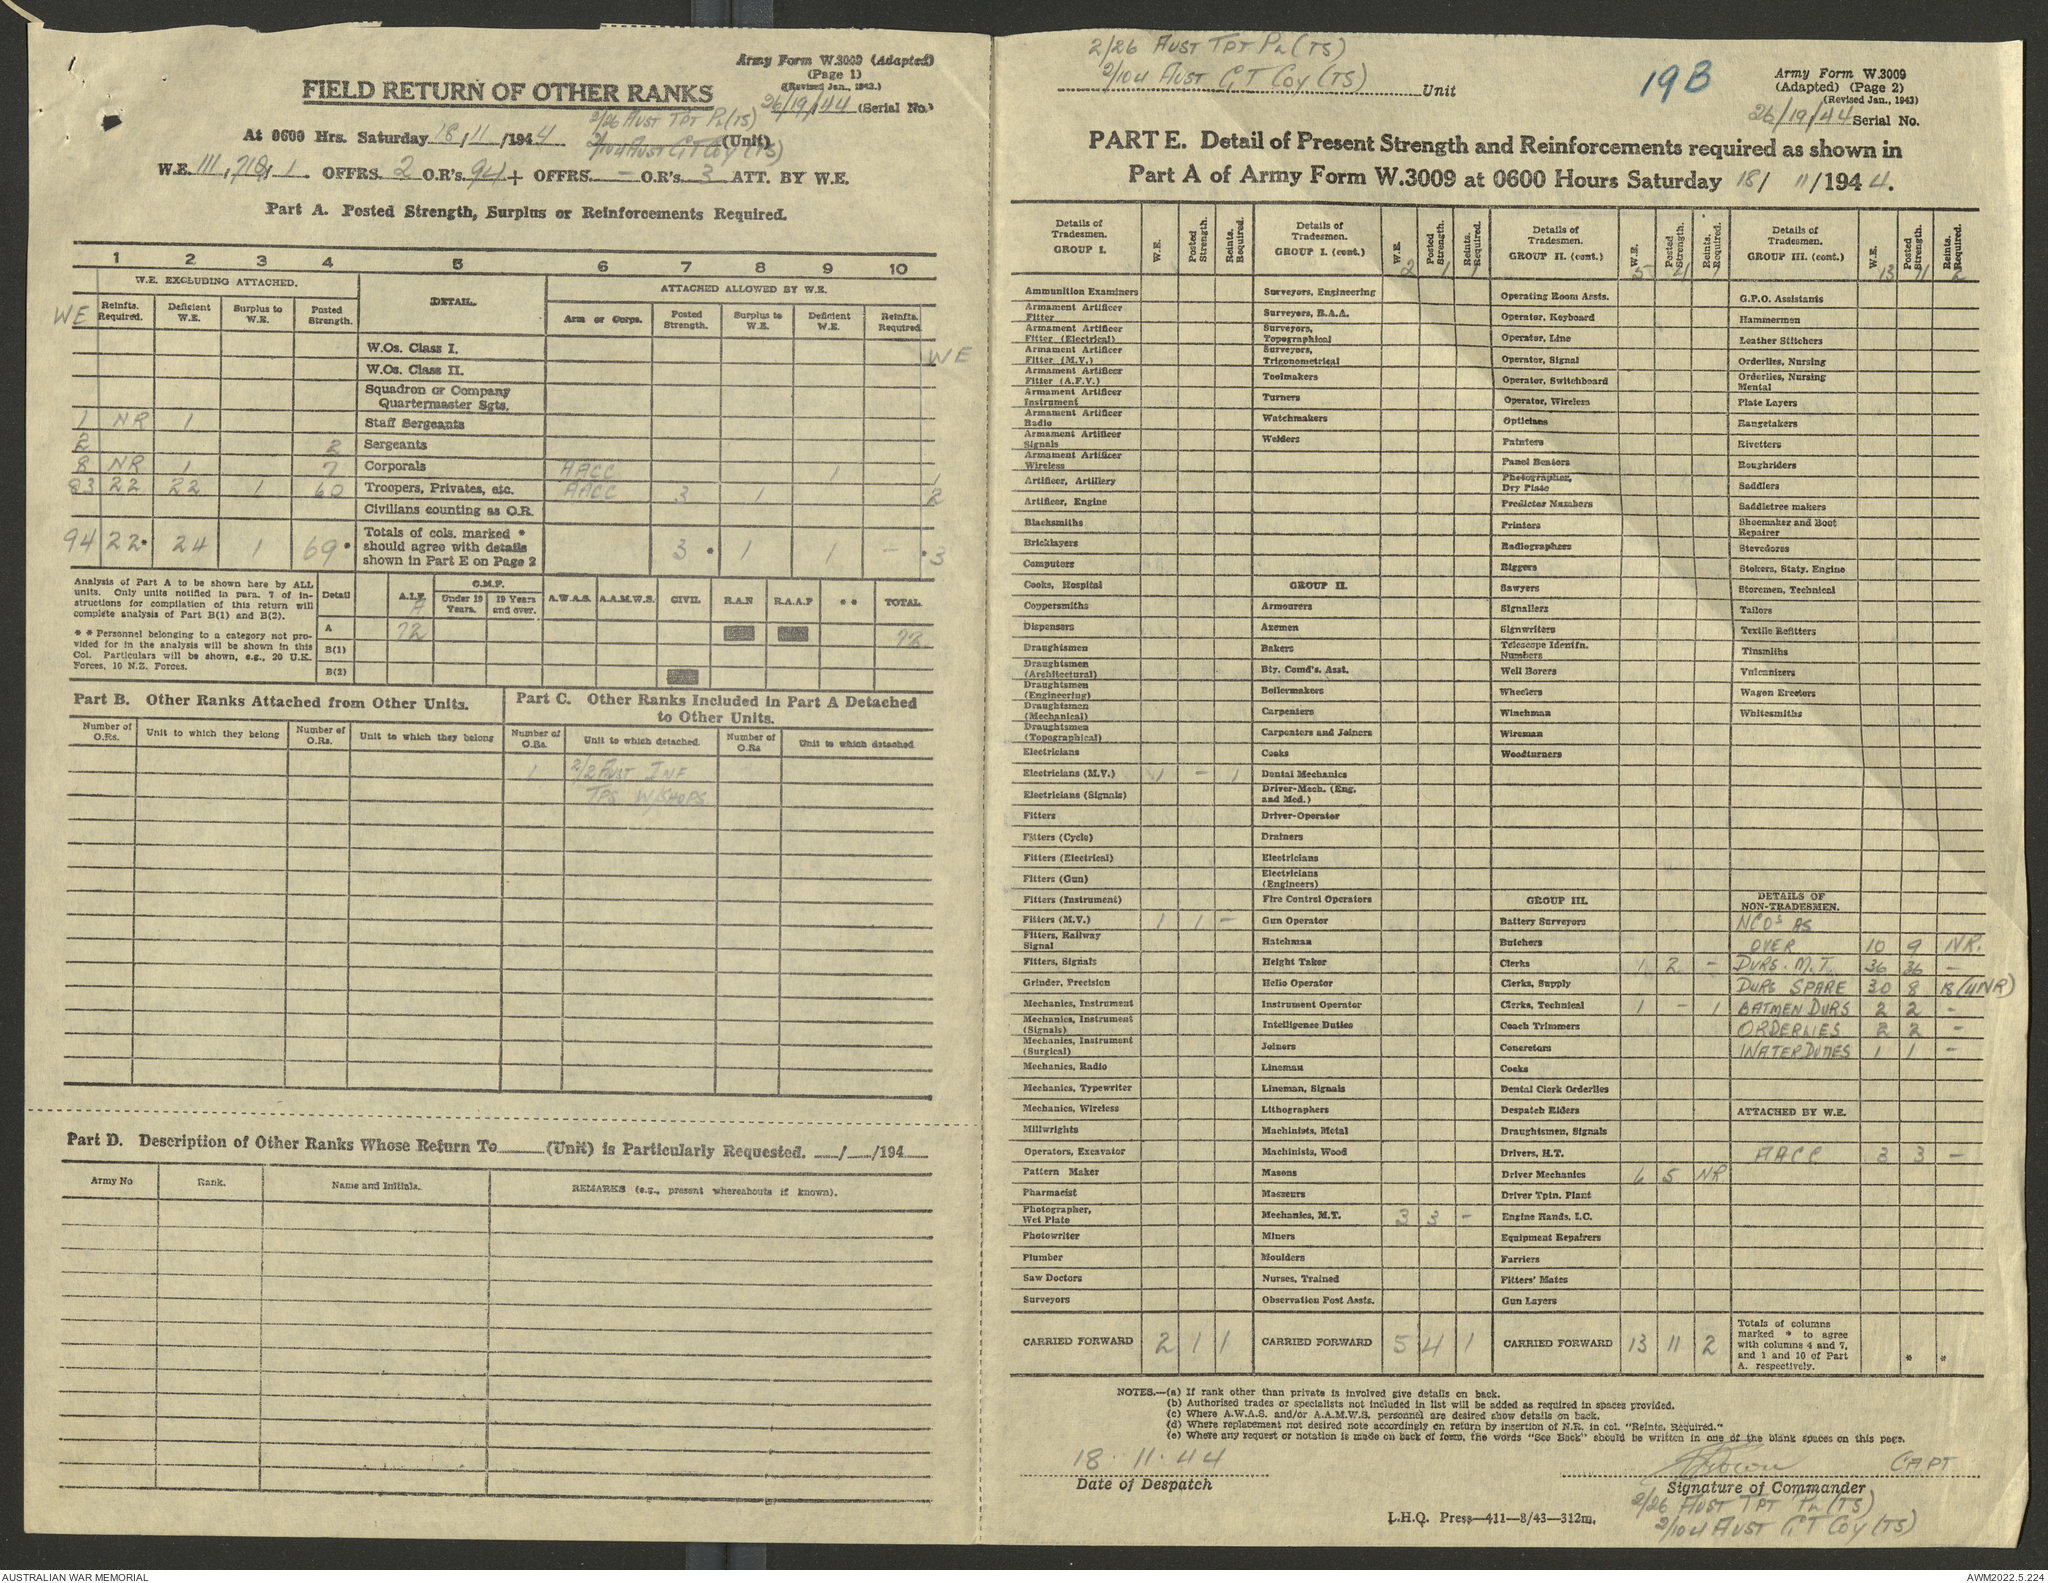 Army Form W.3009 (Adapted)
(Page 1)
(Revised Jan., 1943.)
FIELD RETURN OF OTHER RANKS
26/19/44 (Serial No.)
2/26 AUST TPT PL (TS)
At 0600 Hrs. Saturday 18/11/1944 2/104 AUST GT COY (TS) (Unit)
W.E. 111, 718, 1. OFFRS. 2 O.R's. 94 + OFFRS. – O.R's. 3 ATT. BY W.E.
Part A. Posted Strength, Surplus or Reinforcements Required.
1 2 3 4 5 6 7 8 9 10
W.E. EXCLUDING ATTACHED. DETAIL. ATTACHED ALLOWED BY W.E.
WE Reinfts. Required. Deficient W.E. Surplus to W.E. Posted Strength. Arm or Corps. Posted Strength. Surplus to W.E. Deficient W.E. Reinfts. Required.
W.Os. Class I. WE
W.Os. Class II.
Squadron or Company
Quartermaster Sgts.
1 NR 1 Staff Sergeants
2 2 Sergeants
8 NR 1 7 Corporals AACC 1 1
83 22 22 1 60 Troopers, Privates, etc. AACC 3 1 2
Civilians counting as O.R.
94 22* 24 1 69* Totals of cols. marked * should agree with details shown in Part E on Page 2 3* 1 1 – *3
Analysis of Part A to be shown here by ALL
units. Only units notified in para. 7 of in-
structions for compilation of this return will
complete analysis of Part B(1) and B(2).
* * Personnel belonging to a category not pro-
vided for in the analysis will be shown in this
Col. Particulars will be shown, e.g., 20 U.K.
Forces, 10 N.Z. Forces.
Detail A.I.F. C.M.F. Under 19 Years. 20 Years and over. A.W.A.S. A.A.M.W.S. CIVIL R.A.N R.A.A.F * * TOTAL
A 72 72
B(1)
B(2)
Part B. Other Ranks Attached from Other Units.
Number of O.Rs. Unit to which they belong Number of O.Rs. Unit to which they belong
Part C. Other Ranks Included in Part A Detached
to Other Units.
Number of O.Rs. Unit to which detached. Number of O.Rs Unit to which detached
1 2/2 AUST INF
TPS W/SHOPS
Part D. Description of Other Ranks Whose Return To (Unit) is Particularly Requested. / /194
Army No Rank. Name and Initials. REMARKS (e.g., present whereabouts if known).
2/26 AUST TPT PL (TS)
2/104 AUST GT COY (TS) Unit
19B
Army Form W.3009
(Adapted) (Page 2)
(Revised Jan., 1943)
26/19/44 Serial No.
PART E. Detail of Present Strength and Reinforcements required as shown in
Part A of Army Form W.3009 at 0600 Hours Saturday 18/ 11/1944.
Details of Tradesmen. GROUP I. W.E. Posted Strength. Reints. Required.
Ammunition Examiners
Armament Artificer Fitter
Armament Artificer Fitter (Electrical)
Armament Artificer Fitter (M.V.)
Armament Artificer Fitter (A.F.V.)
Armament Artificer Instrument
Armament Artificer Radio
Armament Artificer Signals
Armament Artificer Wireless
Artificer, Artillery
Artificer, Engine
Blacksmiths
Bricklayers
Computers
Cooks, Hospital
Coppersmiths
Dispensers
Draughtsmen
Draughtsmen (Architectural)
Draughtsmen (Engineering)
Draughtsmen (Mechanical)
Draughtsmen (Topographical)
Electricians
Electricians (M.V.) 1 – 1
Electricians (Signals)
Fitters
Fitters (Cycle)
Fitters (Electrical)
Fitters (Gun)
Fitters (Instrument)
Fitters (M.V.) 1 1 –
Fitters, Railway Signal
Fitters, Signals
Grinder, Precision
Mechanics, Instrument
Mechanics, Instrument (Signals)
Mechanics, Instrument (Surgical)
Mechanics, Radio
Mechanics, Typewriter
Mechanics, Wireless
Millwrights
Operators, Excavator
Pattern Maker
Pharmacist
Photographer, Wet Plate
Photowriter
Plumber
Saw Doctors
Surveyors
CARRIED FORWARD 2 1 1
Details of Tradesmen. GROUP I. (cont.) W.E. 2 Posted Strength. 1 Reints. Required. 1
Surveyors, Engineering
Surveyors, R.A.A.
Surveyors, Topographical
Surveyors, Trigonometrical
Toolmakers
Turners
Watchmakers
Welders
GROUP II.
Armourers
Axemen
Bakers
Bty. Comd's. Asst.
Boilermakers
Carpenters
Carpenters and Joiners
Cooks
Dental Mechanics
Driver-Mech. (Eng. and Med.)
Driver-Operator
Drainers
Electricians
Electricians (Engineers)
Fire Control Operators
Gun Operator
Hatchman
Height Taker
Helio Operator
Instrument Operator
Intelligence Duties
Joiners
Lineman
Lineman, Signals
Lithographers
Machinists, Metal
Machinists, Wood
Masons
Masseurs
Mechanics, M.T. 3 3 –
Miners
Moulders
Nurses, Trained
Observation Post Assts.
CARRIED FORWARD 5 4 1
Details of Tradesmen. GROUP II. (cont.) W.E. 5 Posted Strength. 4 Reints. Required. 1
Operating Room Assts.
Operator, Keyboard
Operator, Line
Operator, Signal
Operator, Switchboard
Operator, Wireless
Opticians
Painters
Panel Beaters
Photographer, Dry Plate
Predictor Numbers
Printers
Radiographers
Riggers
Sawyers
Signallers
Signwriters
Telescope Identfn. Numbers
Well Borers
Wheelers
Winchman
Wireman
Woodturners
GROUP III.
Battery Surveyors
Butchers
Clerks 1 2 –
Clerks, Supply
Clerks, Technical 1 – 1
Coach Trimmers
Concretors
Cooks
Dental Clerk Orderlies
Despatch Riders
Draughtsmen, Signals
Drivers, H.T.
Driver Mechanics 6 5 NR
Driver Tptn. Plant
Engine Hands, I.C.
Equipment Repairers
Farriers
Fitters' Mates
Gun Layers
CARRIED FORWARD 13 11 2
Details of Tradesmen. GROUP III. (cont.) W.E. 13 Posted Strength. 11 Reints. Required. 2
G.P.O. Assistants
Hammermen
Leather Stitchers
Orderlies, Nursing
Orderlies, Nursing Mental
Plate Layers
Rangetakers
Rivetters
Roughriders
Saddlers
Saddletree makers
Shoemaker and Boot Repairer
Stevedores
Stokers, Staty. Engine
Storemen, Technical
Tailors
Textile Refitters
Tinsmiths
Vulcanizers
Wagon Erectors
Whitesmiths
DETAILS OF NON-TRADESMEN.
NCOs AS
OVER 10 9 NR.
DVRS. M.T. 36 36 –
DVRS SPARE 30 8 18 (4NR)
BATMEN DVRS 2 2 –
ORDERLIES 2 2 –
WATER DUTIES 1 1 –
ATTACHED BY W.E.
AACC 3 3 –
Totals of columns
marked * to agree
with columns 4 and 7,
and 1 and 10 of Part
A. respectively. * *
NOTES.—(a) If rank other than private is involved give details on back.
(b) Authorised trades or specialists not included in list will be added as required in spaces provided.
(c) Where A.W.A.S. and/or A.A.M.W.S. personnel are desired show details on back.
(d) Where replacement not desired note accordingly on return by insertion of N.R. in col. "Reints. Required."
(e) Where any request or notation is made on back of form, the words "See Back" should be written in one of the blank spaces on this page.
18.11.44
Date of Despatch
CAPT
Signature of Commander
2/26 AUST TPT PL (TS)
2/104 AUST GT COY (TS)
L.H.Q. Press—411—8/43—312m.
AUSTRALIAN WAR MEMORIAL
AWM2022.5.224